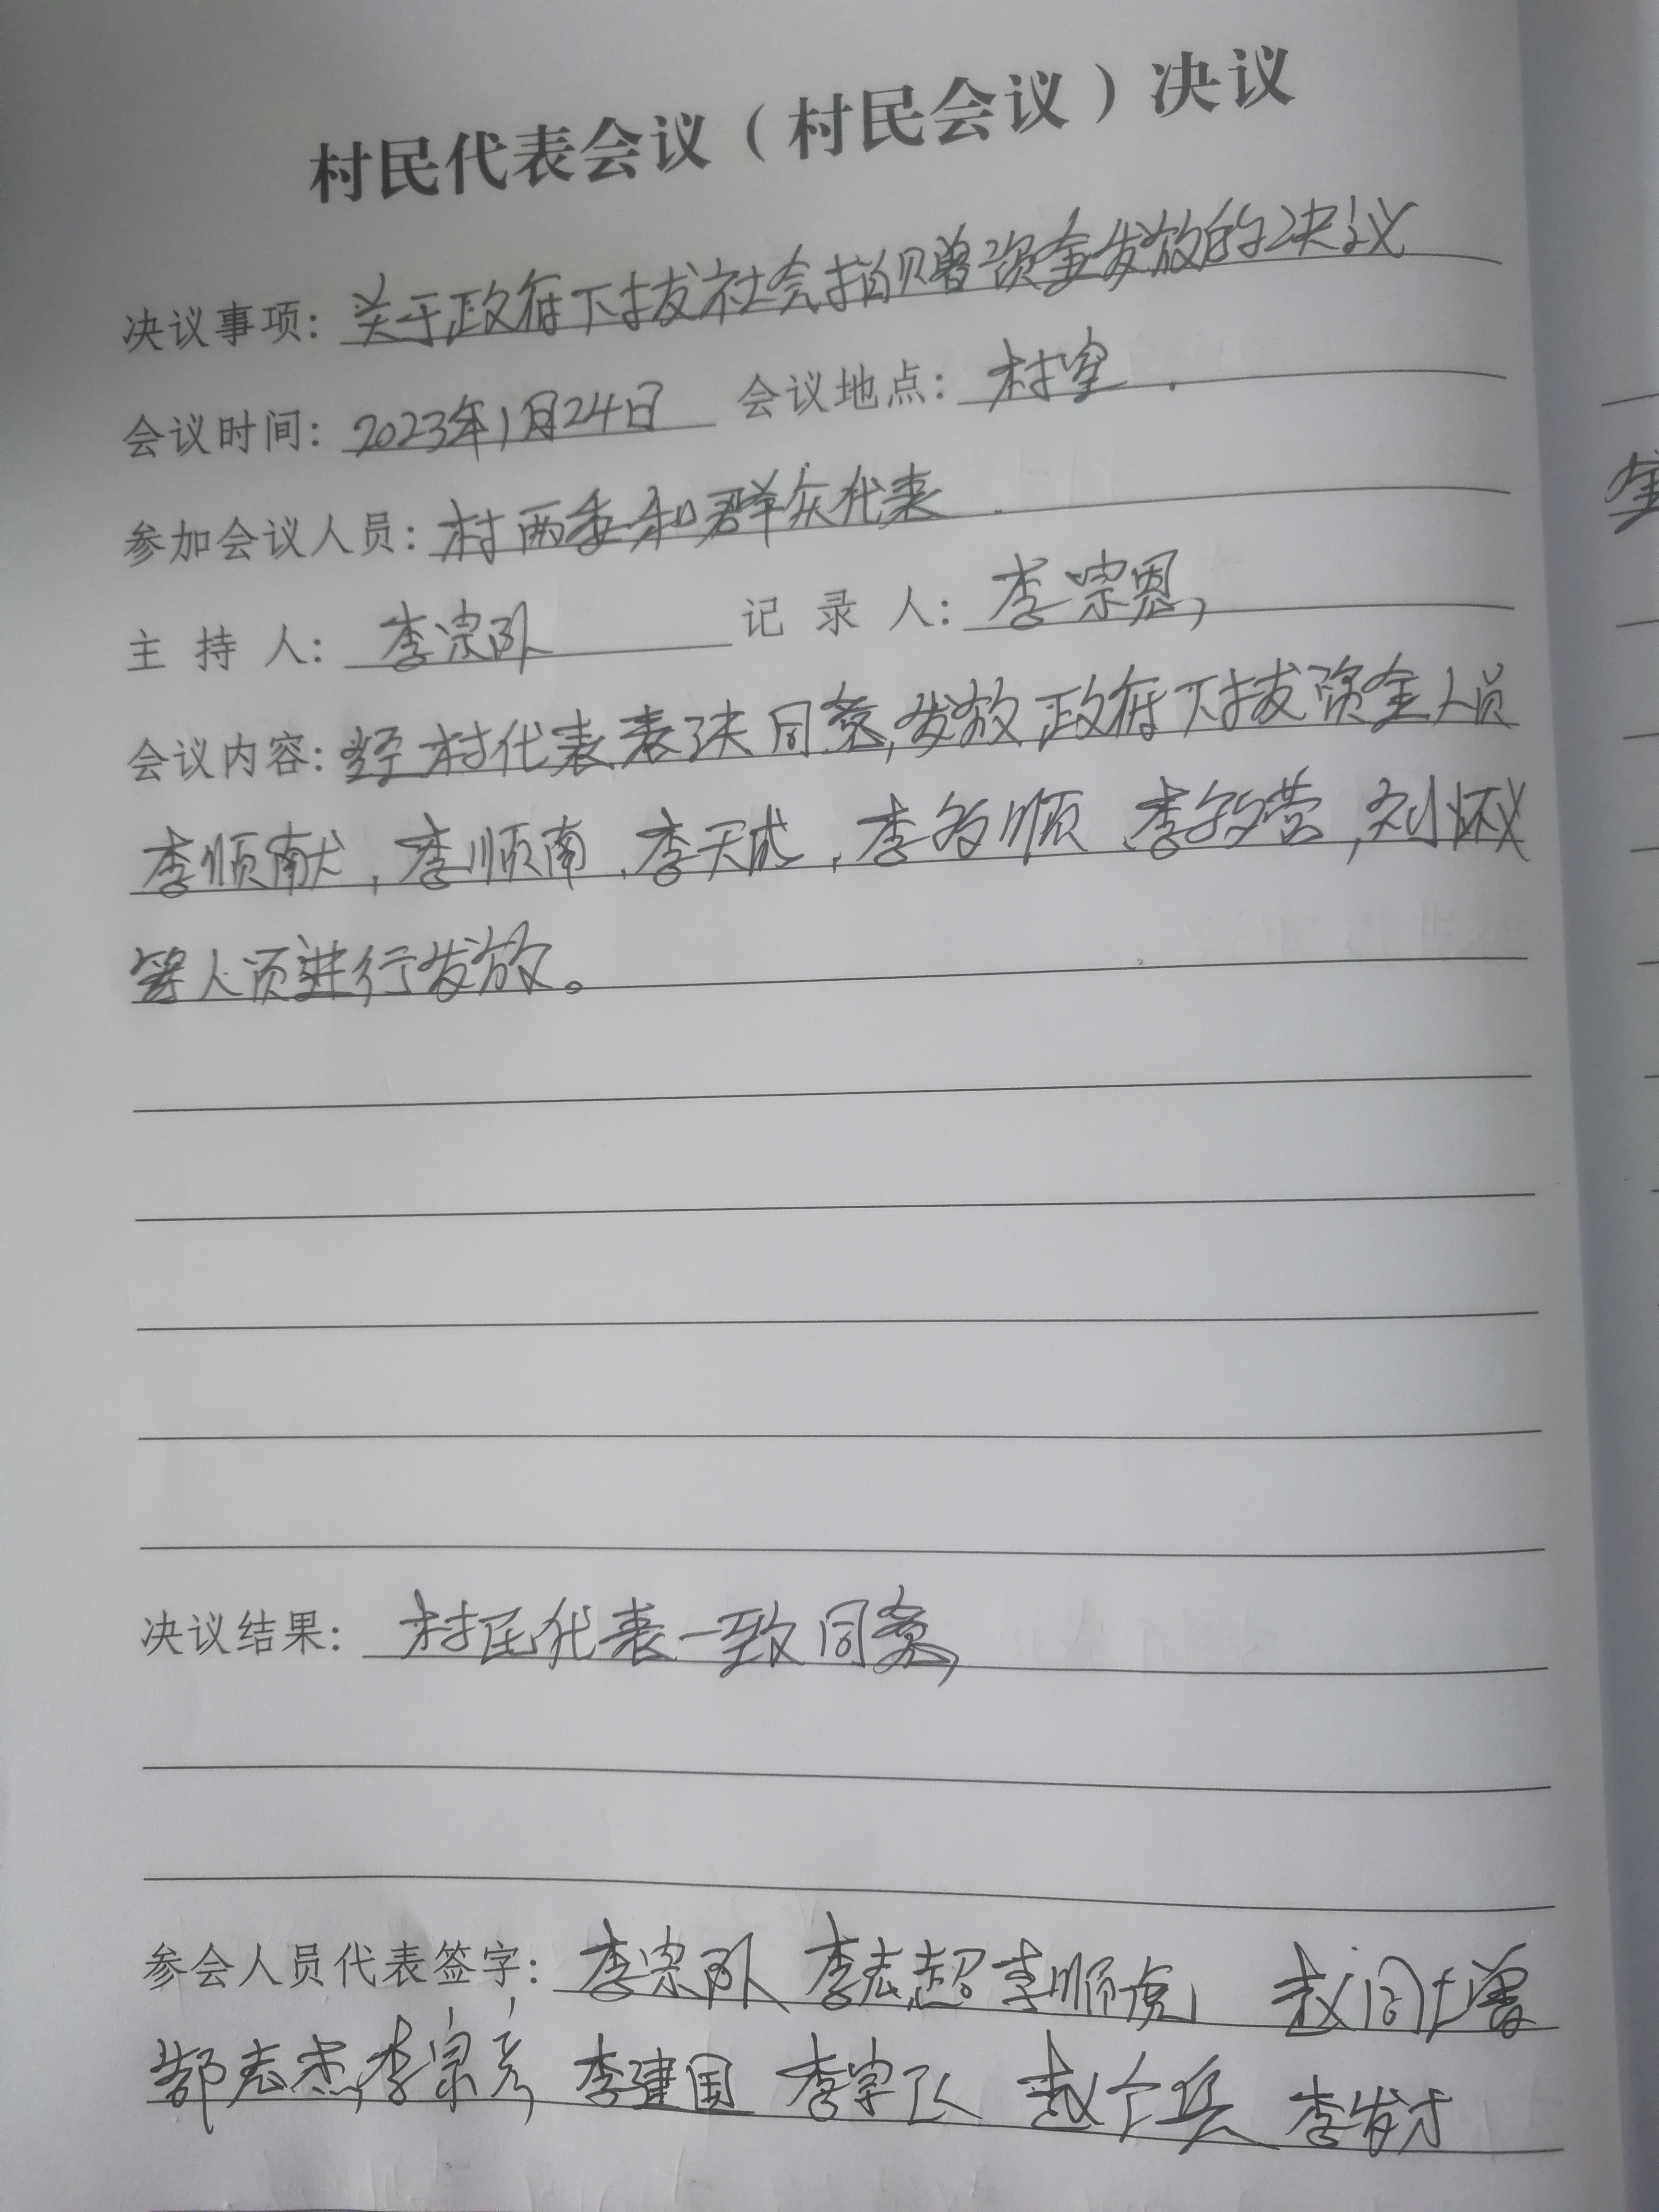 村民代表会议（村民会议）决议
决议事项：关于政府下拔社会捐赠资金发放的决议
会议时间：2023年1月24日 会议地点：村室.
参加会议人员：村两委和群众代表.
主持人：李宗队 记录人：李宗恩,
会议内容：经村代表表决同意,发放政府下拔资金人员
李顺献,李顺南.李天成,李多顺.李敏营,刘怀义
等人员进行发放。
决议结果：村民代表一致同意,
参会人员代表签字：李宗队 李志超 李顺虎 赵同增
郜志杰,李宗彦, 李建国 李宗队 赵全兵 李发才